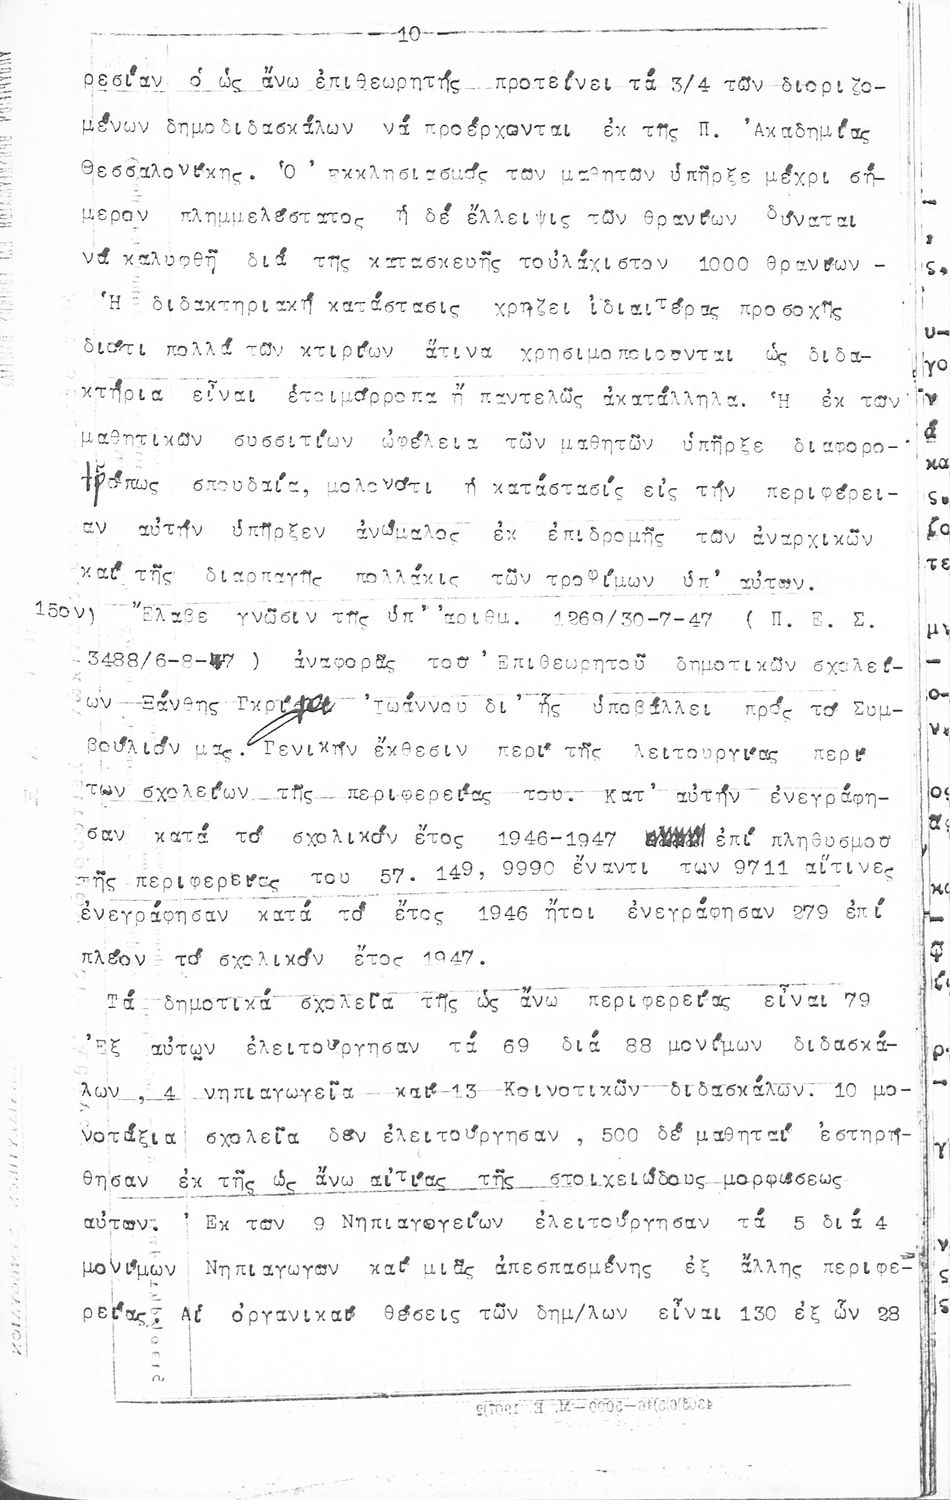 10
ρεσίαν ὁ ὡς ἄνω ἐπιθεωρητής προτείνει τά 3/4 τῶν διοριζο-
μένων δημοδιδασκάλων νά προέρχωνται ἐκ τῆς Π. Ἀκαδημίας
Θεσσαλονίκης. Ὁ ἐκκλησιασμός των μαθητῶν ὑπῆρξε μέχρι σή-
μερον πλημμελέστατος ἡ δέ ἔλλειψις τῶν θρανίων δύναται
νά καλυφθῆ διά της κατασκευῆς τοὐλάχιστον 1000 θρανίων -
Ἡ διδακτηριακή κατάστασις χρηζει ἰδιαιτέρας προσοχῆς
διότι πολλά τῶν κτιρίων ἅτινα χρησιμοποιοῦνται ὡς διδα-
κτήρια εἶναι ἑτοιμόρροπα ἤ παντελῶς ἀκατάλληλα. Ἡ ἐκ των
μαθητικῶν συσσιτίων ὠφέλεια τῶν μαθητῶν ὑπῆρξε διαφορο-
τρόπως σπουδαία, μολονότι ἡ κατάστασίς εἰς τήν περιφέρει-
αν αὐτήν ὑπῆρξεν ἀνώμαλος ἐκ ἐπιδρομῆς τῶν ἀναρχικῶν
καί τῆς διαρπαγῆς πολλάκις τῶν τροφίμων ὑπ' αὐτων.
15ον) Ἔλαβε γνῶσιν τῆς ὑπ' ἀριθμ. 1269/30-7-47 ( Π. Ε. Σ.
3488/6-8-47 ) ἀναφορᾶς τοῦ Ἐπιθεωρητοῦ δημοτικῶν σχολεί-
ων Ξάνθης Γκρί Ἰωάννου δι' ἧς ὑποβάλλει πρός τό Συμ-
βούλιόν μας. Γενικήν ἔκθεσιν περί τῆς λειτουργίας περί
των σχολείων τῆς περιφερείας του. Κατ' αὐτήν ἐνεγράφη-
σαν κατά τό σχολικόν ἔτος 1946-1947 ἐπί πληθυσμοῦ
τῆς περιφερείας του 57. 149, 9990 ἔναντι των 9711 αἵτινες
ἐνεγράφησαν κατά τό ἔτος 1946 ἤτοι ἐνεγράφησαν 279 ἐπί
πλέον τό σχολικόν ἔτος 1947.
Τά δημοτικά σχολεῖα τῆς ὡς ἄνω περιφερείας εἶναι 79
Ἐξ αὐτῶν ἐλειτούργησαν τά 69 διά 88 μονίμων διδασκά-
λων , 4 νηπιαγωγεῖα καί 13 Κοινοτικῶν διδασκάλων. 10 μο-
νοτάξια σχολεῖα δέν ἐλειτούργησαν , 500 δέ μαθηταί ἐστηρή-
θησαν ἐκ τῆς ὡς ἄνω αἰτίας τῆς στοιχειώδους μορφώσεως
αὐτων. Ἐκ των 9 Νηπιαγωγείων ἐλειτούργησαν τά 5 διά 4
μονίμων Νηπιαγωγων καί μιᾶς ἀπεσπασμένης ἐξ ἄλλης περιφε-
ρείας. Αἱ ὀργανικαί θέσεις τῶν δημ/λων εἶναι 130 ἐξ ὧν 28